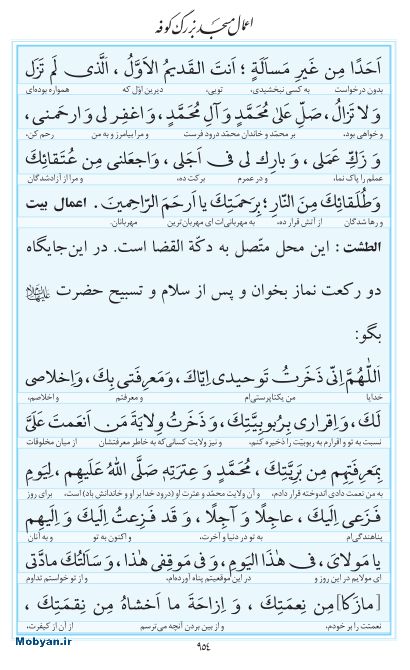 اعمال مسجد بزرگ کوفه
اَحَدًا مِن غَیرِ مَسأَلَةٍ ؛ اَنتَ القَدیمُ الاَوَّلُ ، اَلَّذی لَم تَزَل
بدون درخواست به کسی نبخشیدی، تویی، دیرین اوّل که همواره بوده‌ای
وَ لا تَزالُ، صَلِّ عَلیٰ مُحَمَّدٍ وَ آلِ مُحَمَّدٍ، وَ اغفِر لی وَ ارحَمنی،
و خواهی بود، بر محمّد و خاندان محمّد درود فرست و مرا بیامرز و به من رحم کن،
وَ زَکِّ عَمَلی ، وَ بارِك لی فی اَجَلی ، وَ اجعَلنی مِن عُتَقائِكَ
عملم را پاک نما، و در عمرم برکت ده، و مرا از آزادشدگان
وَ طُلَقائِكَ مِنَ النّارِ ؛ بِرَحمَتِكَ یا اَرحَمَ الرّاحِمینَ . اعمال بیت
و رها شدگان از آتش قرار ده، به مهربانی‌ات ای مهربان‌ترین مهربانان.
الطشت : این محل متّصل به دکّة القضا است. در این جایگاه
دو رکعت نماز بخوان و پس از سلام و تسبیح حضرت
بگو:
اَللّٰهُمَّ اِنّی ذَخَرتُ تَوحیدی اِیّاكَ، وَ مَعرِفَتی بِكَ، وَ اِخلاصی
خدایا من یکتاپرستی‌ام و معرفتم و اخلاصم،
لَكَ، وَ اِقراری بِرُبوبِیَّتِكَ، وَ ذَخَرتُ وِلایَةَ مَن اَنعَمتَ عَلَیَّ
نسبت به تو و اقرارم به ربوبیّت را ذخیره کنم، و نیز ولایت کسانی‌که به خاطر معرفتشان از میان مخلوقات
بِمَعرِفَتِهِم مِن بَرِیَّتِكَ، مُحَمَّدٍ وَ عِترَتِهِ صَلَّی اللّٰهُ عَلَیهِم ، لِیَومِ
به من نعمت دادی اندوخته قرار دادم، و آن ولایت محمّد و عترت او (درود خدا بر او و خاندانش باد) است، برای روز
فَزَعی اِلَیكَ ، عاجِلًا وَ آجِلًا ، وَ قَد فَزِعتُ اِلَیكَ وَ اِلَیهِم
پناهندگی‌ام به تو در دنیا و آخرت، و اکنون به تو و به آنان
یا مَولایَ، فی هٰذَا الیَومِ، وَ فی مَوقِفی هٰذا، وَ سَأَلتُكَ مادَّتی
ای مولایم در این روز و در این موقعیتم پناه آورده‌ام، و از تو خواستم تداوم
[مازَکا] مِن نِعمَتِكَ ، وَ اِزاحَةَ ما اَخشاهُ مِن نِقمَتِكَ ،
نعمتت را بر خودم، و از بین بردن آنچه می‌ترسم از آن از کیفرت،
۹۵۴
Mobyan.ir